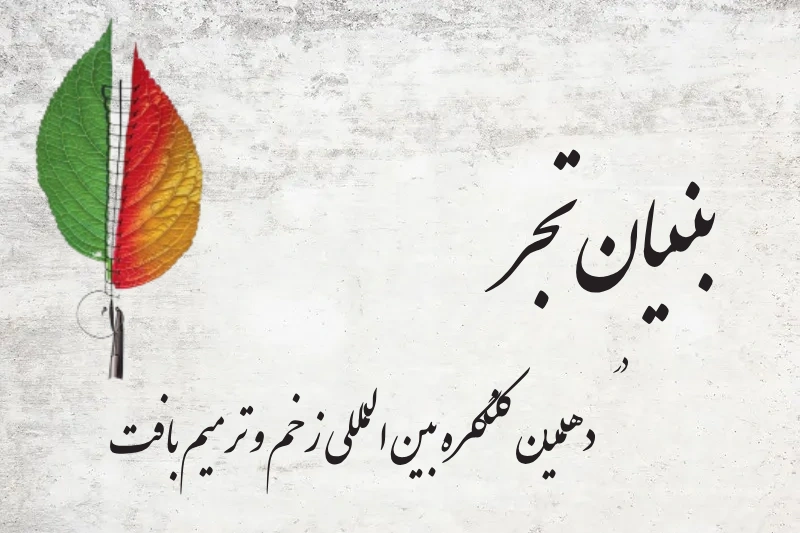 بنیان تجر
در
دهمین کنگره بین المللی زخم و ترمیم بافت